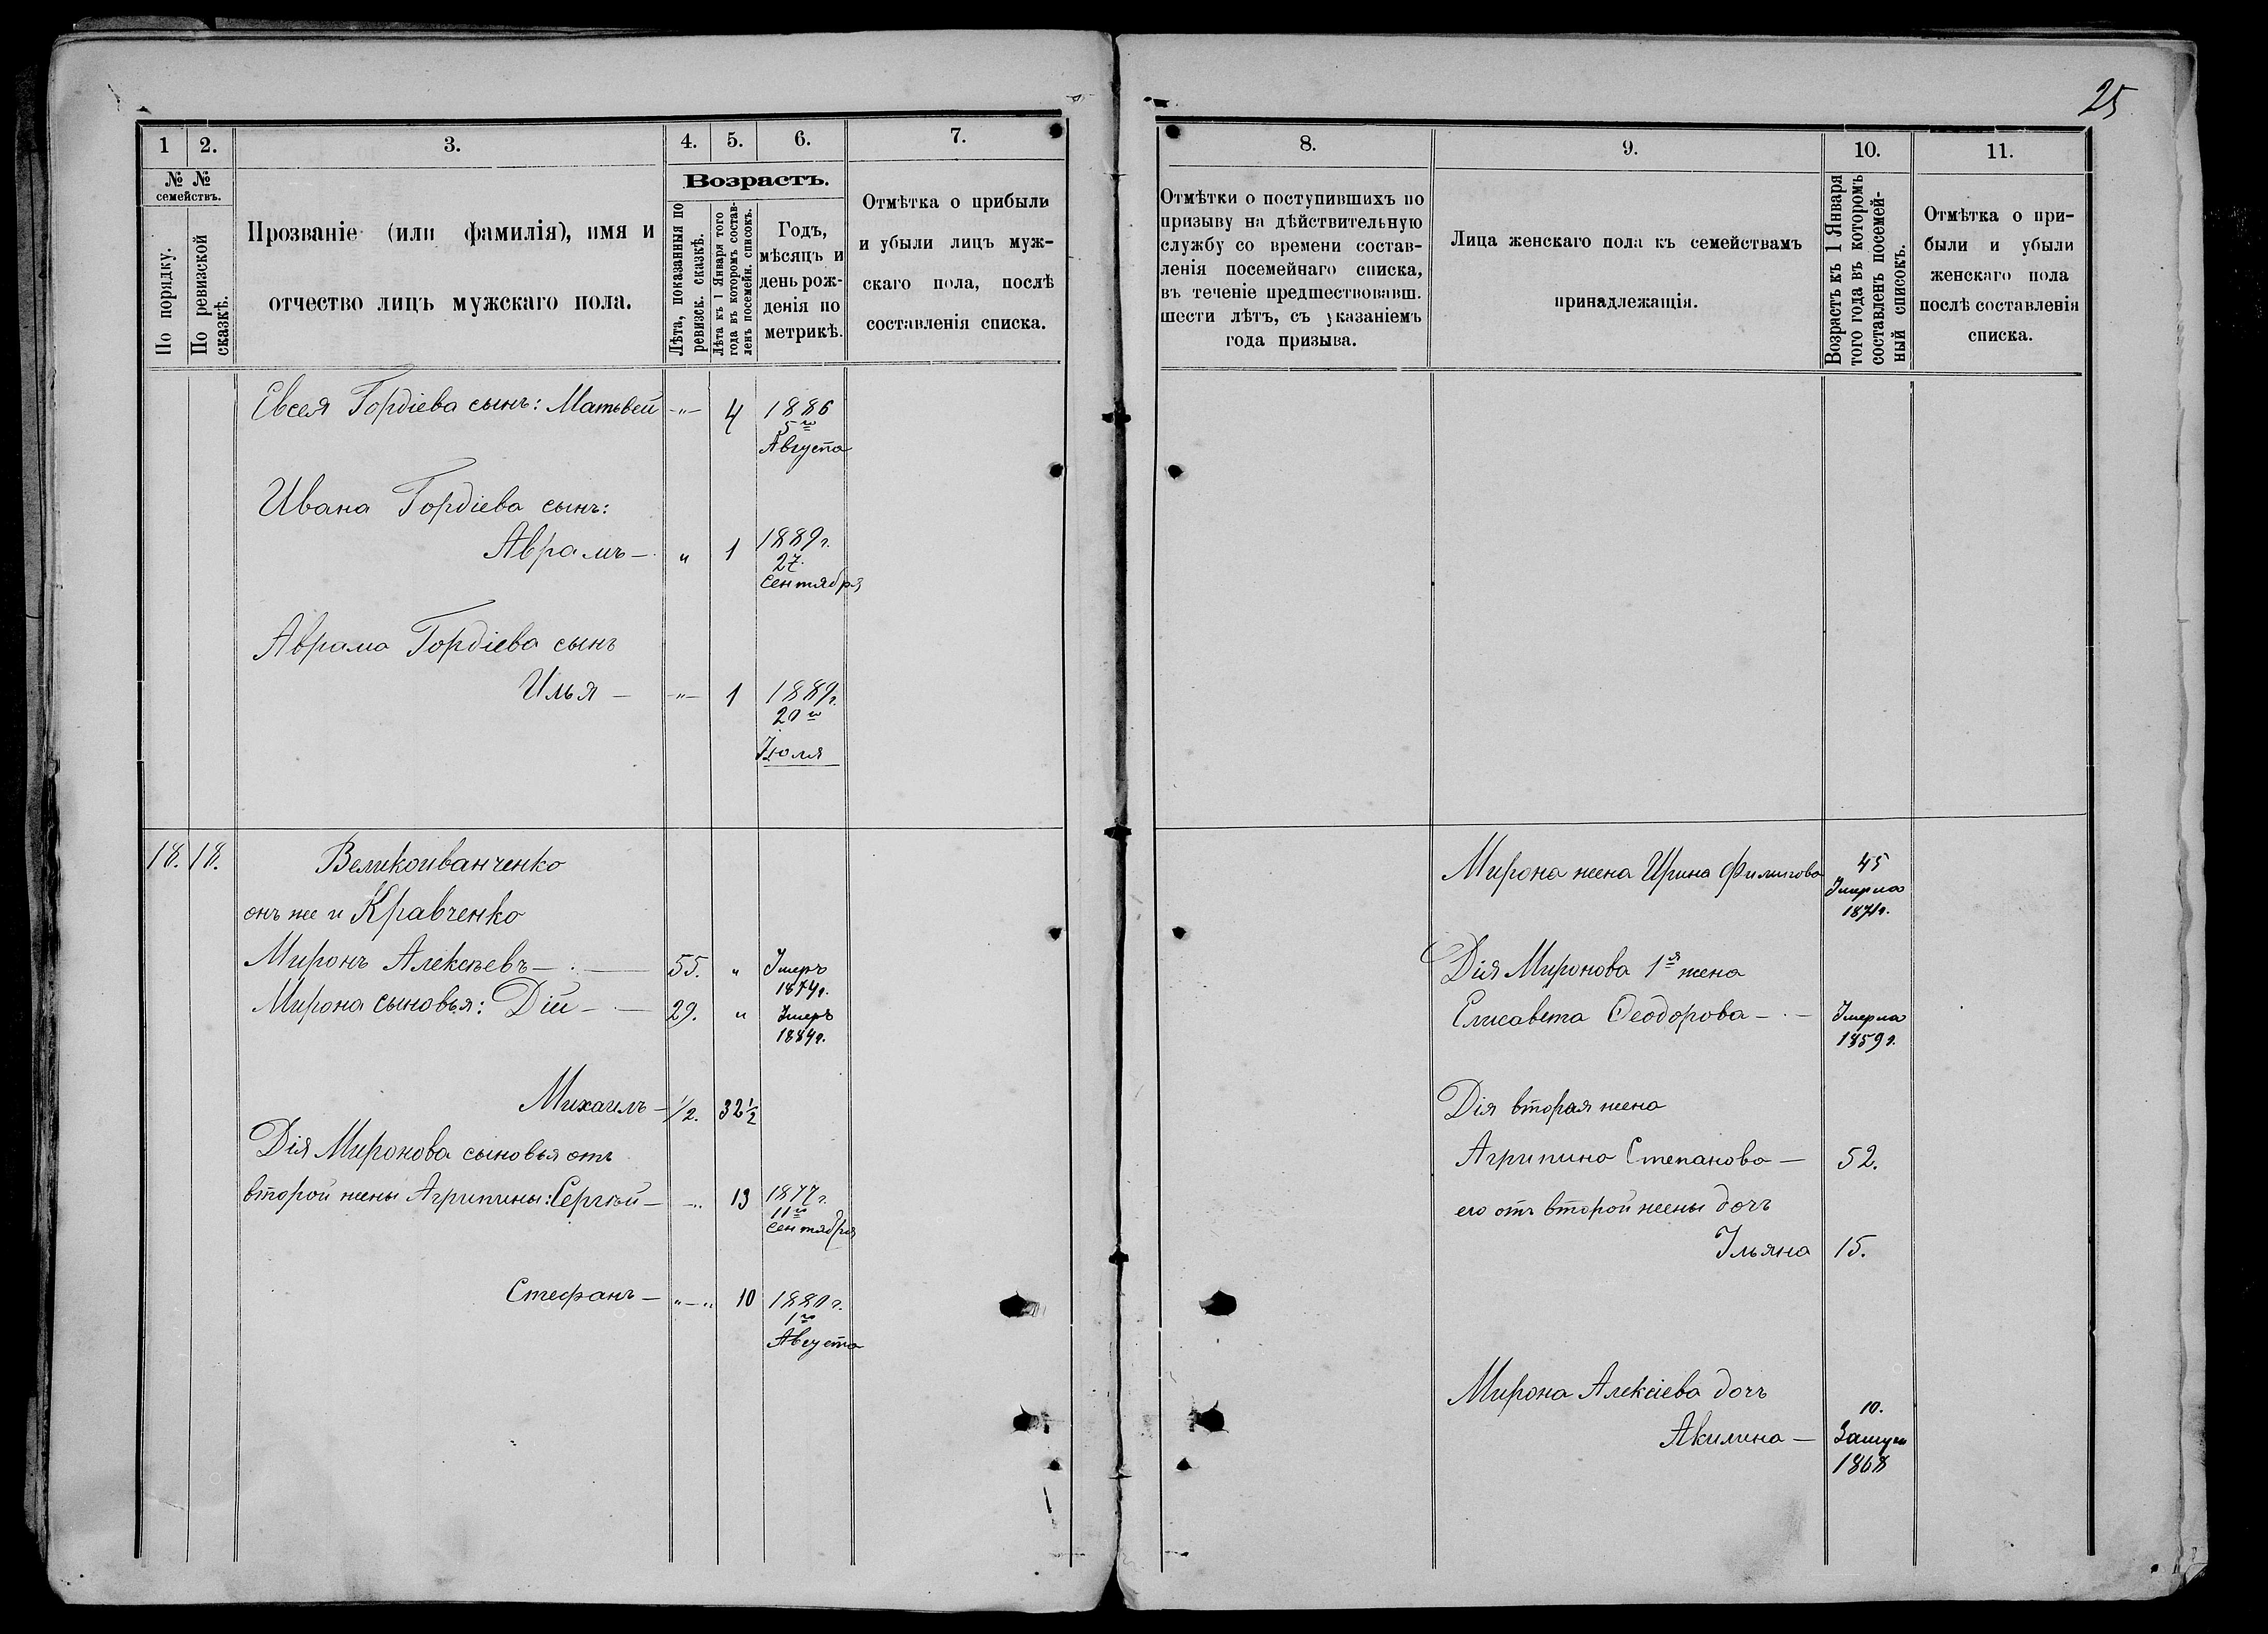 25
1
2.
3.
4.
5.
6.
7.
№ №
семействъ.
По порядку.
По ревизской
сказкѣ.
Прозваніе (или фамилія), имя и
отчество лицъ мужскаго пола.
Возрастъ.
Лѣта, показанныя по
ревизск. сказкѣ.
Лѣта къ 1 Января того
года въ которомъ состав-
ленъ посемейн. списокъ.
Годъ,
мѣсяцъ и
день рож-
денія по
метрикѣ.
Отмѣтка о прибыли
и убыли лицъ муж-
скаго пола, послѣ
составленія списка.
Евсея Гордіева сынъ: Матвей -"- 4 1886
5го
Августа
Ивана Гордіева сынъ:
Аврамъ — " 1 1889г.
27
сентября
Аврама Гордіева сынъ
Илья — -"- 1 1889г.
20го
Іюля
18. 18. Великоиванченко
онъ же и Кравченко
Миронъ Алексѣевъ — 55. " Умеръ
1874г.
Мирона сыновья: Дій — 29. " Умеръ
1889г.
Михаилъ — 1/2. 32 1/2
Дія Миронова сыновья отъ
второй жены Агрипины: Сергѣй — -"- 13 1877г.
11го
сентября
Стефанъ — "-" 10 1880г.
1го
Августа
8.
9.
10.
11.
Отмѣтки о поступившихъ по
призыву на дѣйствительную
службу со времени состав-
ленія посемейнаго списка,
въ теченіе предшествовавш.
шести лѣтъ, съ указаніемъ
года призыва.
Лица женскаго пола къ семействамъ
принадлежащія.
Возрастъ къ 1 Января
того года въ которомъ
составленъ посемей-
ный списокъ.
Отмѣтка о при-
были и убыли
женскаго пола
послѣ составленія
списка.
Мирона жена Ирина Филипова 45
Умерла
1871г.
Дія Миронова 1я жена
Елисавета Ѳеодорова — Умерла
1859г.
Дія вторая жена
Агрипина Степанова — 52.
его отъ второй жены дочь
Ульяна 15.
Мирона Алексіева дочь
10.
Акилина — Замуж
1868